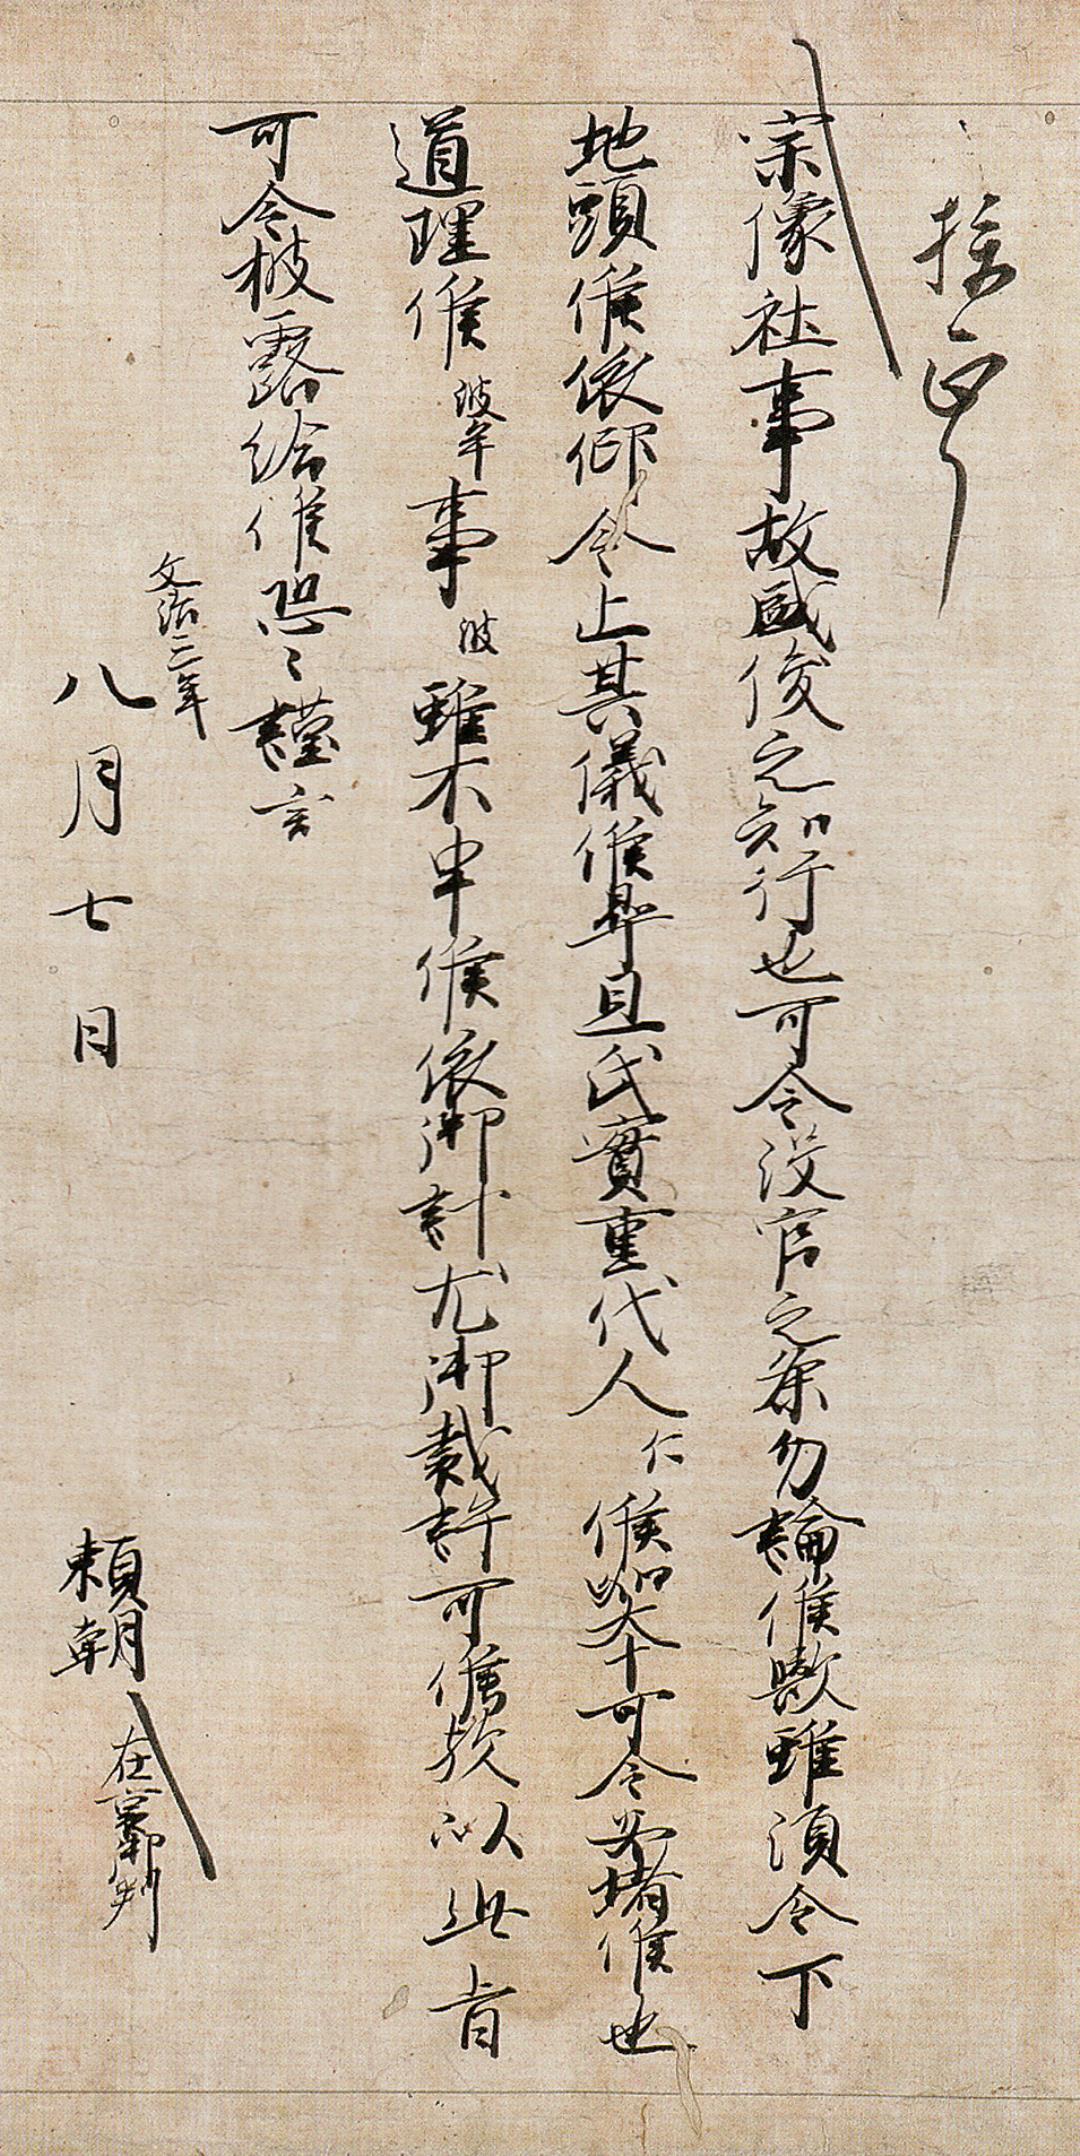 宗像社事故盛俊之知行也可令没官之条勿論候歟雖須令下
地頭候依仰令止其儀候畢且氏實重代人仁候如本可令安堵候也
道理候波牟事波雖不申候依御計尤御裁許可候歟以此旨
可令披露給候恐々謹言
文治三年
八月七日
頼朝在裏御判